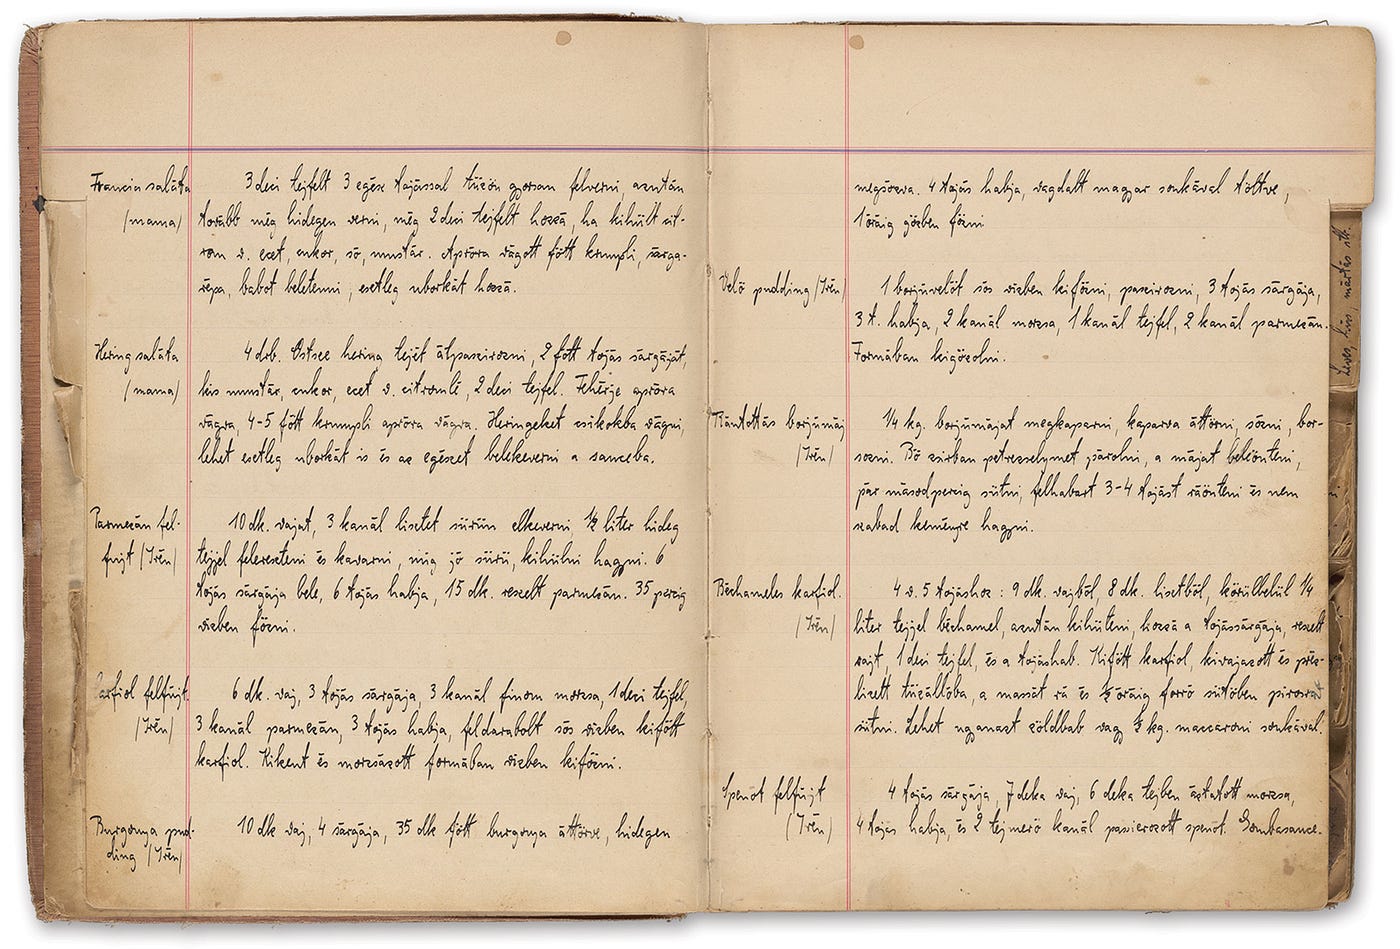 Francia saláta
/mama/
3 deci tejfelt 3 egész tojással tűzön gyorsan felverni, azután
tovább míg hidegen verni, még 2 deci tejfelt hozzá, ha kihült cit-
rom v. ecet, cukor, só, mustár. Apróra vágott főtt krumpli, sárga-
répa, babot beletenni, esetleg uborkát hozzá.
Hering saláta
/mama/
4 drb. Ostsee hering tejét átpaszirozni, 2 főtt tojás sárgáját,
kis mustár, cukor, ecet v. citromlé, 2 deci tejfel. Fehérje apróra
vágva, 4-5 főtt krumpli apróra vágva. Heringeket csikokba vágni,
lehet esetleg uborkát is és az egészet belekeverni a sauceba.
Parmezán fel-
fujt /Irén/
10 dk. vajat, 3 kanál lisztet sürün elkeverni, ½ liter hideg
tejjel felereszteni és kavarni, míg jó sürü, kihülni hagyni. 6
tojás sárgája bele, 6 tojás habja, 15 dk. reszelt parmezán. 35 percig
vizben főzni.
Karfiol felfujt.
/Irén/
6 dk. vaj, 3 tojás sárgája, 3 kanál finom morzsa, 1 deci tejfel,
3 kanál parmezán, 3 tojás habja, feldarabolt sós vizben kifőtt
karfiol. Kikent és morzsázott formában vizben kifőzni.
Burgonya pud-
ding /Irén/
10 dk vaj, 4 sárgája, 35 dk főtt burgonya áttörve, hidegen
megsózva. 4 tojás habja, vagdalt magyar sonkával töltve,
1 óráig gőzben főzni
Velő pudding /Irén/
1 borjuvelőt sós vizben kifőzni, paszirozni, 3 tojás sárgája,
3 t. habja, 2 kanál morzsa, 1 kanál tejfel, 2 kanál parmezán.
Formában kigőzölni.
Rántottás borjumáj
/Irén/
¼ kg. borjumájat megkaparni, kaparva áttörni, sózni, bor-
sozni. Bő zsirban petrezselymet párolni, a májat beleönteni,
pár másodpercig sütni, felhabart 3-4 tojást ráönteni és nem
szabad keményre hagyni.
Béchameles karfiol.
/Irén/
4 v. 5 tojáshoz : 9 dk. vajból, 8 dk. lisztből, körülbelül ¼
liter tejjel béchamel, azután kihüteni, hozzá a tojássárgája, reszelt
sajt, 1 deci tejfel, és a tojáshab. Kifőtt karfiol, kivajazott és präz-
lizett tüzállóba, a masszát rá és ½ óráig forró sütőben pirosra
sütni. Lehet ugyanazt zöldbab vagy ½ kg. maccaroni sonkával.
Spenót felfujt
/Irén/
4 tojás sárgája, 7 deka vaj, 6 deka tejben áztatott morzsa,
4 tojás habja, és 2 tejmerő kanál passzirozott spenót. Gombasauce.
Leves, hús, mártás stb.